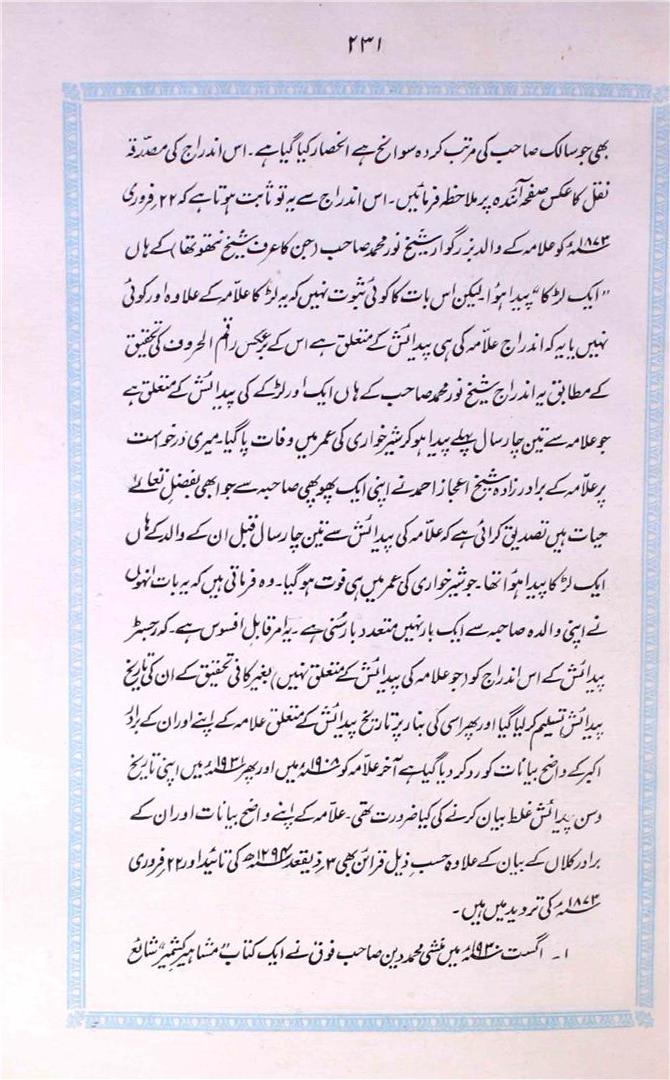 ۲۳۱
بھی جو سالک صاحب کی مرتب کردہ سوانح ہے انحصار کیا گیا ہے۔ اس اندراج کی مصدّقہ
نقل کا عکس صفحہ آئندہ پر ملاحظہ فرمائیں۔ اس اندراج سے یہ تو ثابت ہوتا ہے کہ ۲۲؍ فروری
۱۸۷۳ء کو علامہ کے والد بزرگوار شیخ نور محمد صاحب (جن کا عرف شیخ نتھو تھا) کے ہاں
”ایک لڑکا“ پیدا ہوُا لیکن اس بات کا کوئی ثبوت نہیں کہ یہ لڑکا علامہ کے علاوہ اور کوئی
نہیں یا یہ کہ اندراج علاّمہ کی ہی پیدائش کے متعلق ہے اس کے برعکس راقم الحروف کی تحقیق
کے مطابق یہ اندراج شیخ نور محمد صاحب کے ہاں ایک اور لڑکے کی پیدائش کے متعلق ہے
جو علامہ سے تین چار سال پہلے پیدا ہو کر شیر خواری کی عمر میں وفات پا گیا۔ میری درخواست
پر علاّمہ کے برادر زادہ شیخ اعجاز احمد نے اپنی ایک پھوپھی صاحبہ سے جو ابھی بفضلِ تعالےٰ
حیات ہیں تصدیق کرائی ہے کہ علاّمہ کی پیدائش سے تین چار سال قبل ان کے والد کے ہاں
ایک لڑکا پیدا ہوُا تھا۔ جو شیر خواری کی عمر میں ہی فوت ہو گیا۔ وہ فرماتی ہیں کہ یہ بات انہوں
نے اپنی والدہ صاحبہ سے ایک بار نہیں متعدد بار سُنی ہے۔ یہ امر قابلِ افسوس ہے۔ کہ رجسٹر
پیدائش کے اس اندراج کو (جو علامہ کی پیدائش کے متعلق نہیں) بغیر کافی تحقیق کے ان کی تاریخ
پیدائش تسلیم کر لیا گیا اور پھر اسی کی بنار پر تاریخ پیدائش کے متعلق علامہ کے اپنے اور ان کے برادر
اکبر کے واضح بیانات کو رد کر دیا گیا ہے آخر علاّمہ کو ۱۹۰۸ء میں اور پھر ۱۹۳۱ء میں اپنی تاریخ
وسن پیدائش غلط بیان کرنے کی کیا ضرورت تھی۔ علاّمہ کے اپنے واضح بیانات اور ان کے
برادر کلاں کے بیان کے علاوہ حسب ذیل قرائن بھی ۳؍ ذیقعد ۱۲۹۴ھ کی تائید اور ۲۲؍ فروری
۱۸۷۳ء کی تردید میں ہیں۔
۱۔ اگست ۱۹۳۰ء میں منشی محمد دین صاحب فوق نے ایک کتاب ”مشاہیر کشمیر“ شائع